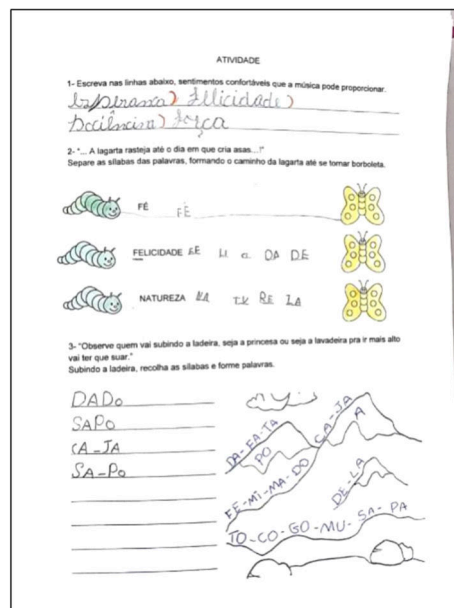 ATIVIDADE
1- Escreva nas linhas abaixo, sentimentos confortáveis que a música pode proporcionar.
Felicidade
força
2- "... A lagarta rasteja até o dia em que cria asas...!"
Separe as sílabas das palavras, formando o caminho da lagarta até se tornar borboleta.
FÉ FÉ
FELICIDADE FE LI CI DA DE
NATUREZA NA TU RE ZA
3- "Observe quem vai subindo a ladeira, seja a princesa ou seja a lavadeira pra ir mais alto
vai ter que suar."
Subindo a ladeira, recolha as sílabas e forme palavras.
DADO
SAPO
CA-JA
SA-PO
CA-JA
A
DA-FA-TA
PO
FE-MI-MA-DO
DE-LA
TO-CO-GO-MU-SA-PA